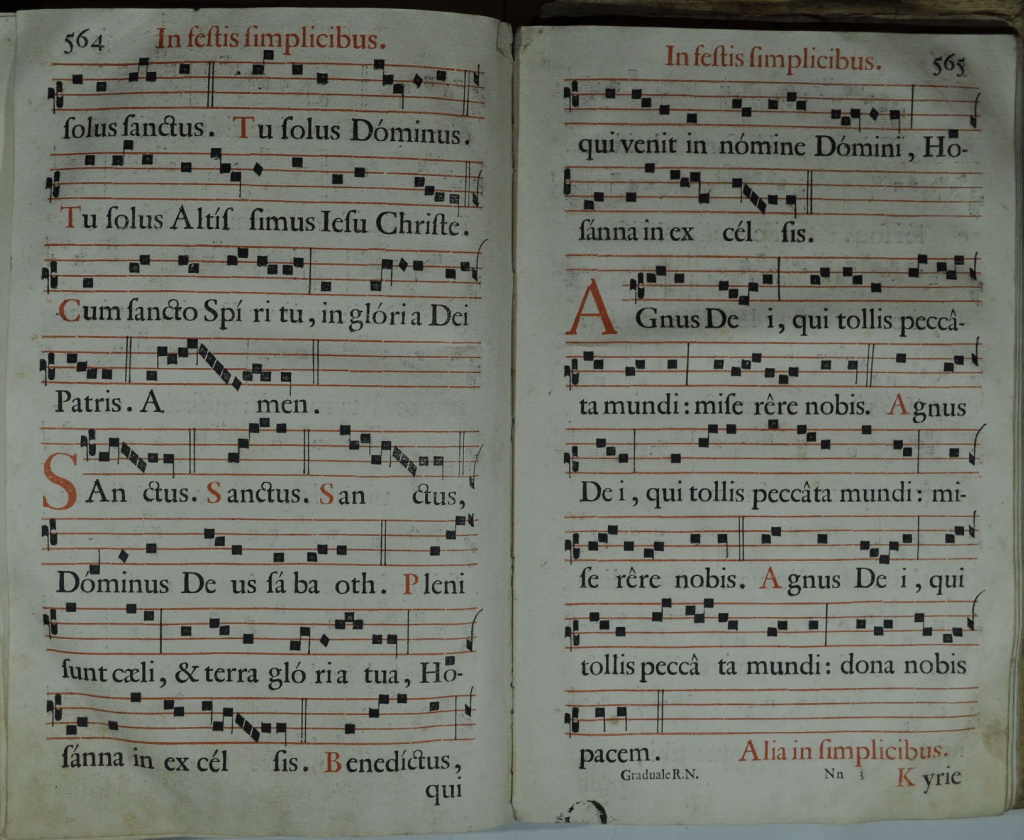 564 In festis simplicibus.
solus sanctus. Tu solus Dóminus.
Tu solus Altíſ simus Iesu Christe.
Cum sancto Spí ri tu, in glóri a Dei
Patris. A men.
SAn ctus. Sanctus. San ctus,
Dóminus De us sá ba oth. Pleni
sunt cæli, & terra gló ri a tua, Ho-
sánna in ex cél sis. Benedíctus,
qui
In festis simplicibus. 565
qui venit in nómine Dómini, Ho-
sánna in ex cél sis.
AGnus De i, qui tollis peccâ-
ta mundi: mise rêre nobis. Agnus
De i, qui tollis peccâta mundi: mi-
se rêre nobis. Agnus De i, qui
tollis peccâ ta mundi: dona nobis
pacem. Alia in simplicibus.
Graduale R.N. Nn 3 Kyrie